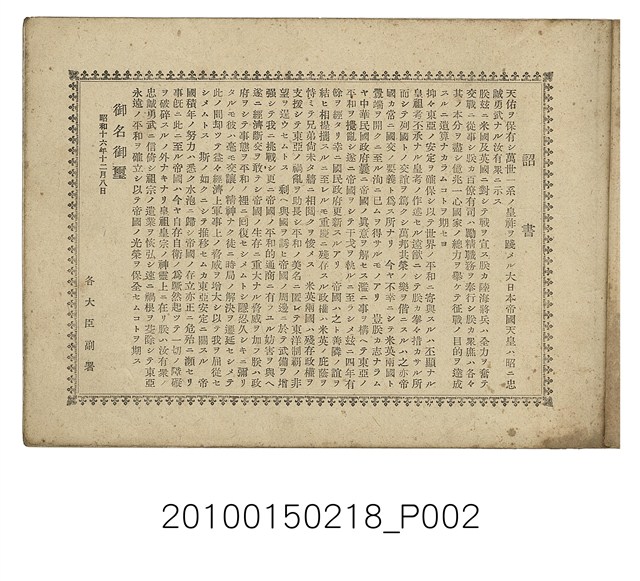 詔書
天佑ヲ保有シ萬世一系ノ皇祚ヲ踐メル大日本帝國天皇ハ昭ニ忠
誠勇武ナル汝有衆ニ示ス
朕茲ニ米國及英國ニ對シテ戰ヲ宣ス朕カ陸海將兵ハ全力ヲ奮テ
交戰ニ從事シ朕カ百僚有司ハ勵精職務ヲ奉行シ朕カ衆庶ハ各々
其ノ本分ヲ盡シ億兆一心國家ノ總力ヲ擧ケテ征戰ノ目的ヲ達成
スルニ遺算ナカラムコトヲ期セヨ
抑々東亞ノ安定ヲ確保シ以テ世界ノ平和ニ寄與スルハ丕顯ナル
皇祖考丕承ナル皇考ノ作述セル遠猷ニシテ朕カ拳々措カサル所
而シテ列國トノ交誼ヲ篤クシ萬邦共榮ノ樂ヲ偕ニスルハ之亦帝
國カ常ニ國交ノ要義ト爲ス所ナリ　今ヤ不幸ニシテ米英兩國ト
釁端ヲ開クニ至ル洵ニ已ムヲ得サルモノアリ　豈朕カ志ナラム
ヤ中華民國政府曩ニ帝國ノ眞意ヲ解セス濫ニ事ヲ構ヘテ東亞ノ
平和ヲ攪亂シ遂ニ帝國ヲシテ干戈ヲ執ルニ至ラシメ茲ニ四年有
餘ヲ經タリ幸ニ國民政府更新スルアリ　帝國ハ之ト善隣ノ誼ヲ
結ヒ相提攜スルニ至レルモ重慶ニ殘存スル政權ハ米英ノ庇蔭ヲ
恃ミテ兄弟尚未タ牆ニ相鬩クヲ悛メス　米英兩國ハ殘存政權ヲ
支援シテ東亞ノ禍亂ヲ助長シ平和ノ美名ニ匿レテ東洋制覇ノ非
望ヲ逞ウセムトス　剩ヘ與國ヲ誘ヒ帝國ノ周邊ニ於テ武備ヲ增
強シテ我ニ挑戰シ更ニ帝國ノ平和的通商ニ有ラユル妨害ヲ與ヘ
遂ニ經濟斷交ヲ敢テシ帝國ノ生存ニ重大ナル脅威ヲ加フ朕ハ政
府ヲシテ事態ヲ平和ノ裡ニ囘復セシメムトシ隱忍久シキニ彌リ
タルモ彼ハ毫モ交讓ノ精神ナク徒ニ時局ノ解決ヲ遷延セシメテ
此ノ間却ツテ益々經濟上軍事上ノ脅威ヲ增大シ以テ我ヲ屈從セ
シメムトス　斯ノ如クニシテ推移セムカ東亞安定ニ關スル　帝
國積年ノ努力ハ悉ク水泡ニ歸シ帝國ノ存立亦正ニ危殆ニ瀕セリ
事旣ニ此ニ至ル帝國ハ今ヤ自存自衞ノ爲蹶然起ツテ一切ノ障礙
ヲ破碎スルノ外ナキナリ皇祖皇宗ノ神靈上ニ在リ朕ハ汝有衆ノ
忠誠勇武ニ信倚シ祖宗ノ遺業ヲ恢弘シ速ニ禍根ヲ芟除シテ東亞
永遠ノ平和ヲ確立シ以テ帝國ノ光榮ヲ保全セムコトヲ期ス
御名御璽
昭和十六年十二月八日
各大臣副署
20100150218_P002